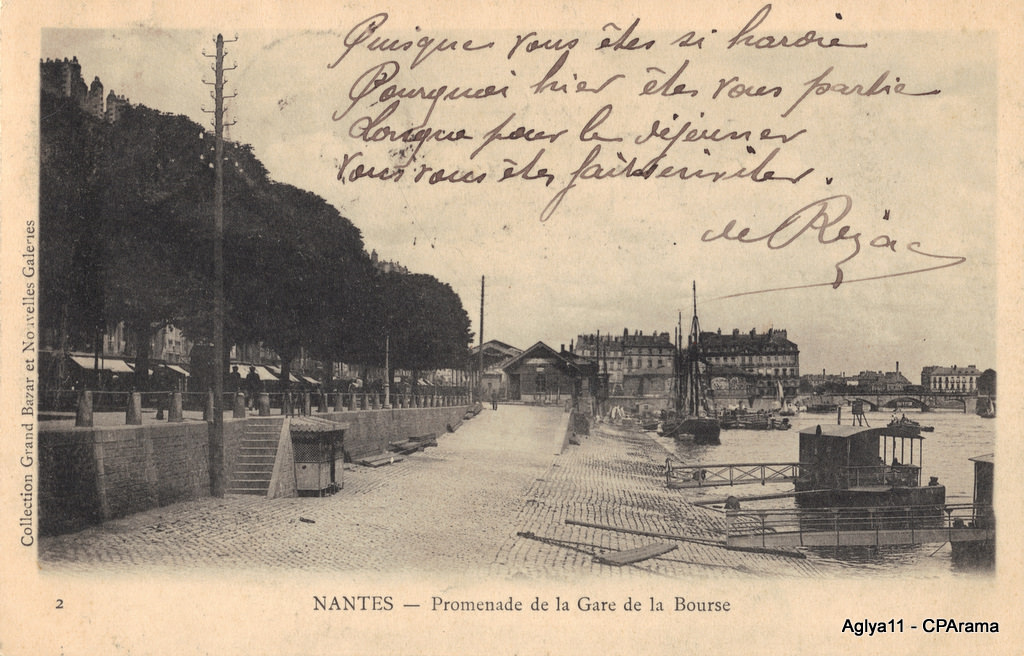 Puisque vous êtes si hardie
Pourquoi hier êtes vous partie
Lorsque pour le déjeuner
Vous vous êtes fait inviter.
de Rezac
Collection Grand Bazar et Nouvelles Galeries
2
NANTES — Promenade de la Gare de la Bourse
Aglya11 - CPArama